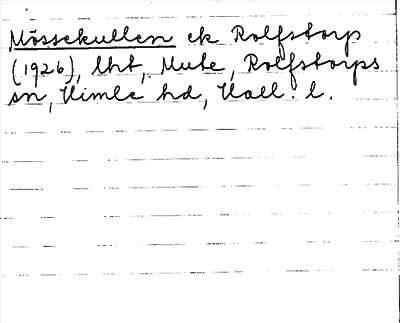 Mössekullen ek Rolfstorp
(1926), lht, Mute, Rolfstorps
sn, Himle hd, Hall. l.